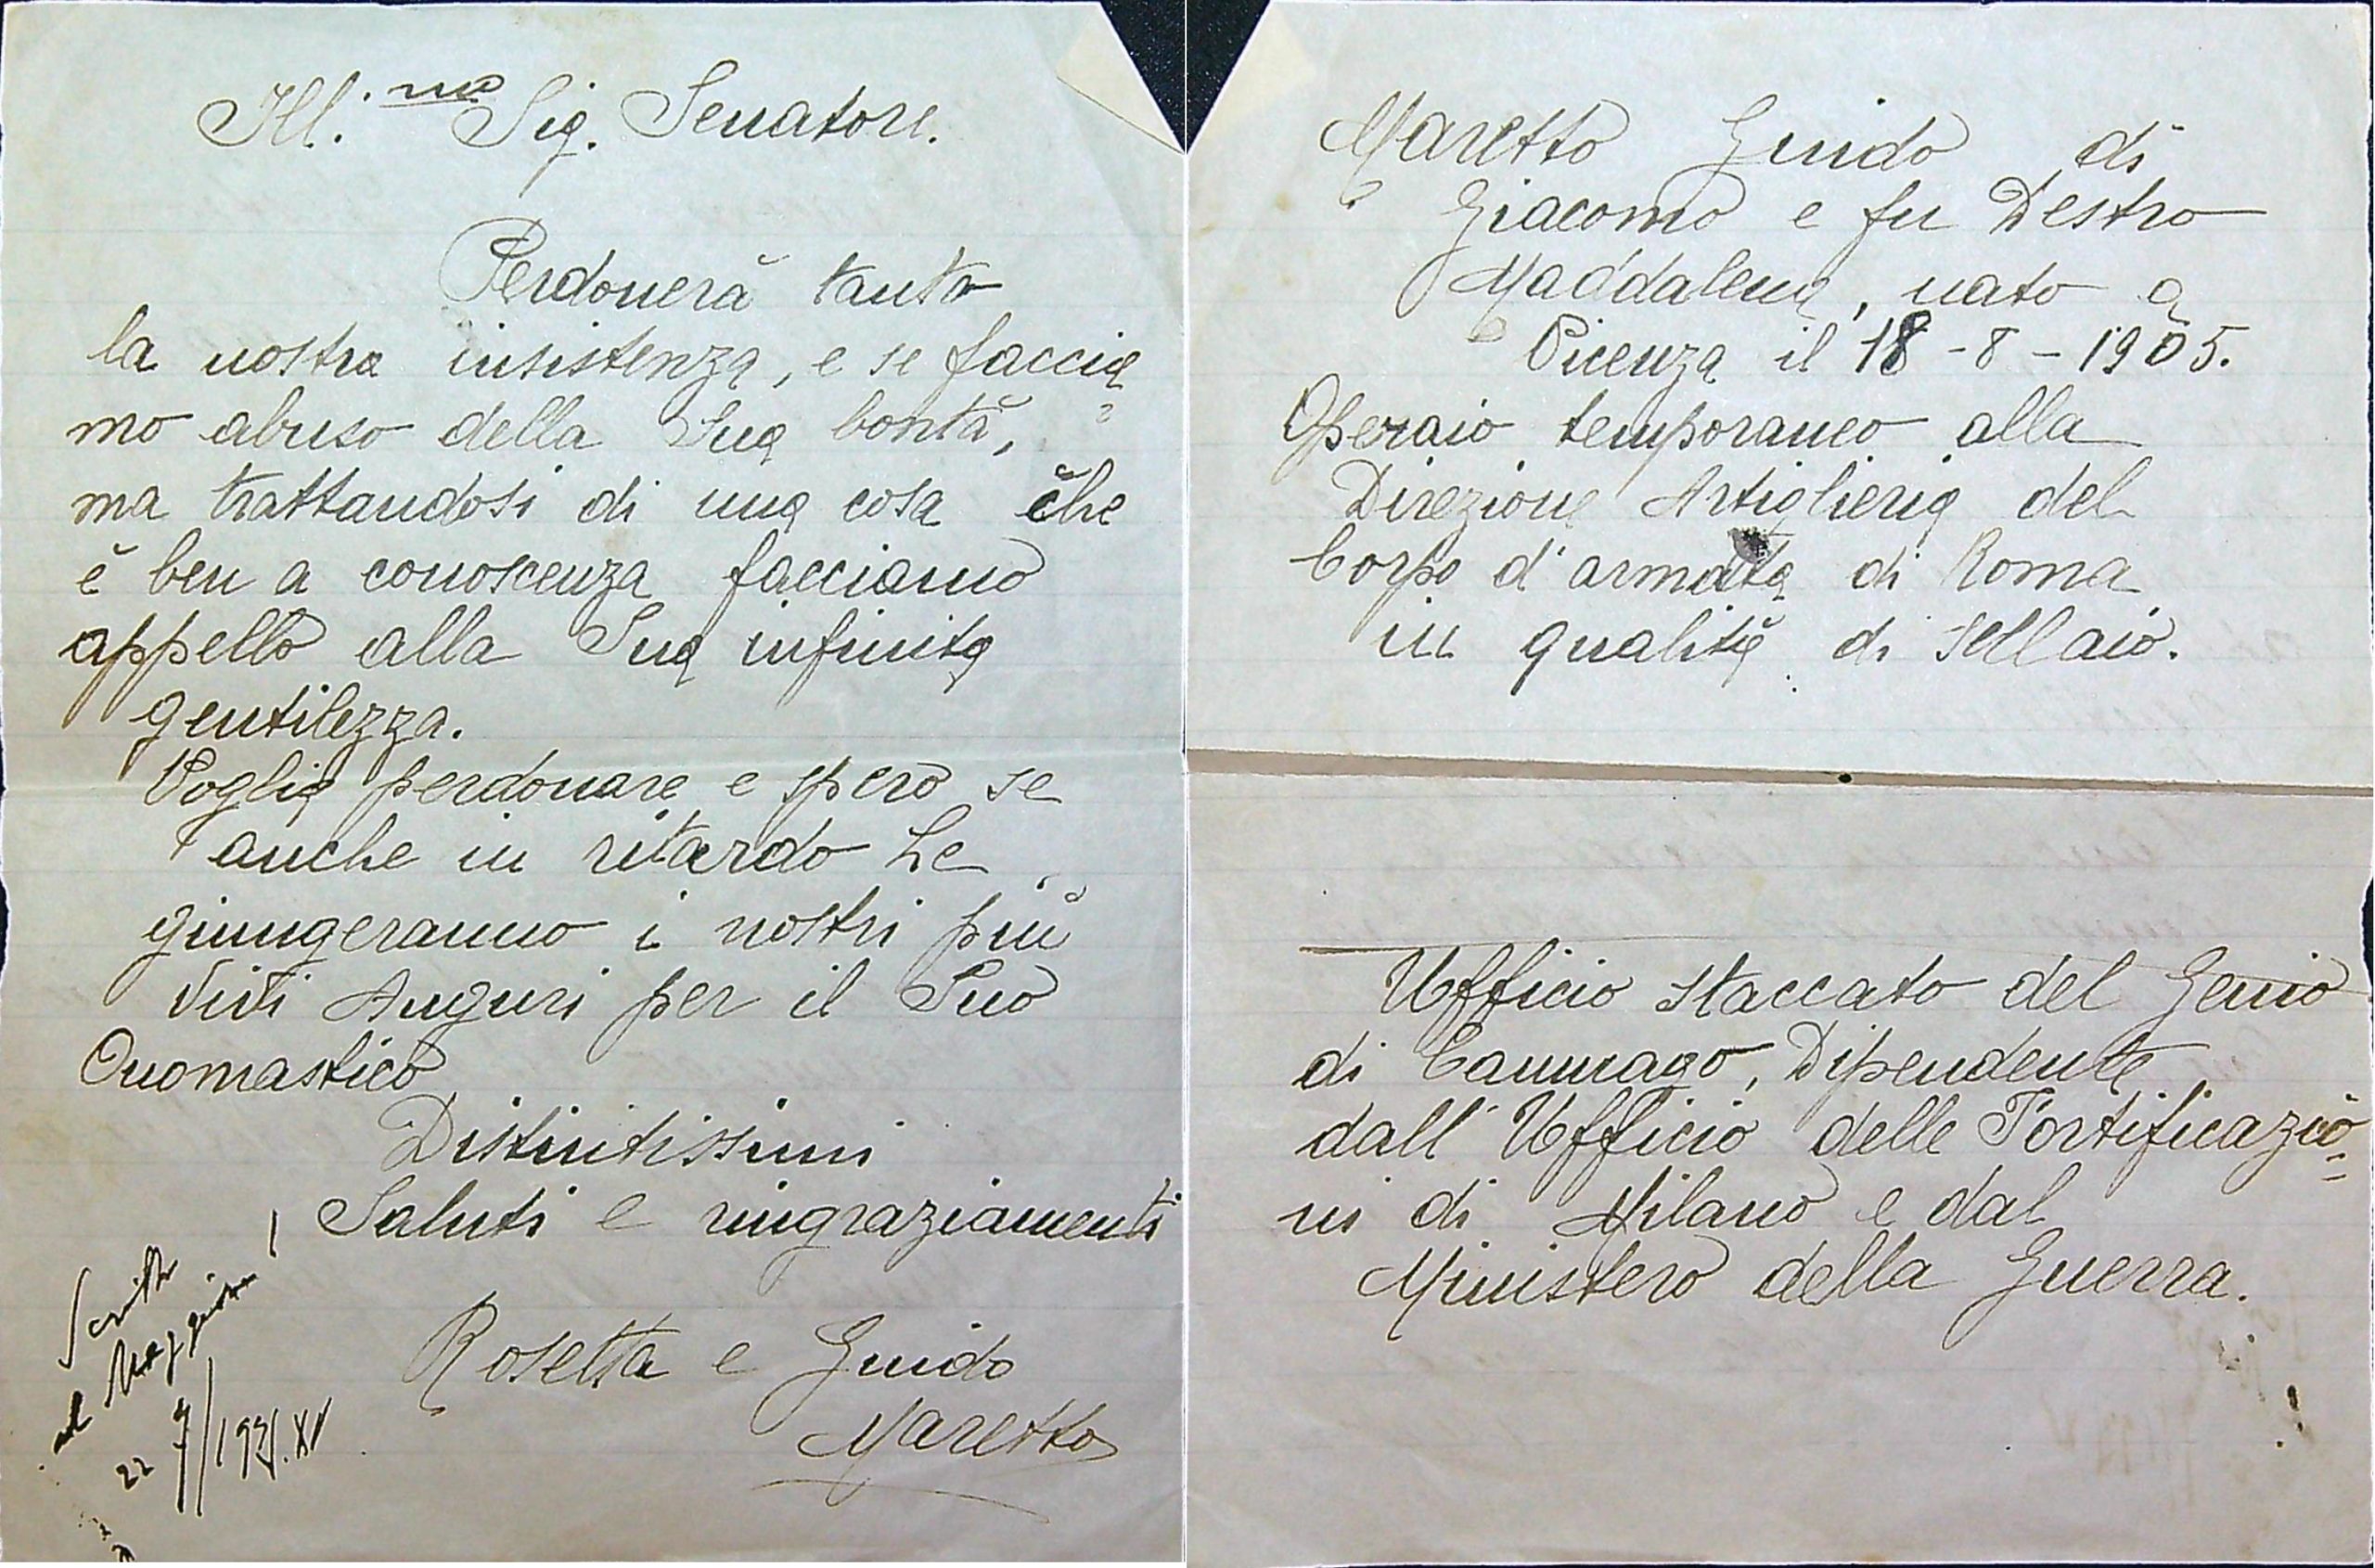 Ill.mo Sig. Senatore.
Perdonerà tanto
la nostra insistenza, e se faccia
mo abuso della Sua bontà,
ma trattandosi di una cosa che
è ben a conoscenza facciamo
appello alla Sua infinita
gentilezza.
Voglia perdonare e spero se
anche in ritardo Le
giungeranno i nostri più
vivi Auguri per il Suo
Onomastico
Distintissimi
Saluti e ringraziamenti
Rosetta e Guido
Maretto
Scritto
al Maggiore
22 7/193 XV
Maretto Guido di
Giacomo e fu Destro
Maddalena, nato a
Vicenza il 18-8-1905.
Operaio temporaneo alla
Direzione Artiglieria del
Corpo d'armata di Roma
in qualità di Sellaio.
Ufficio staccato del Genio
di Dipendente
dall'Ufficio delle Fortificazio=
ni di Milano e dal
Ministero della Guerra.